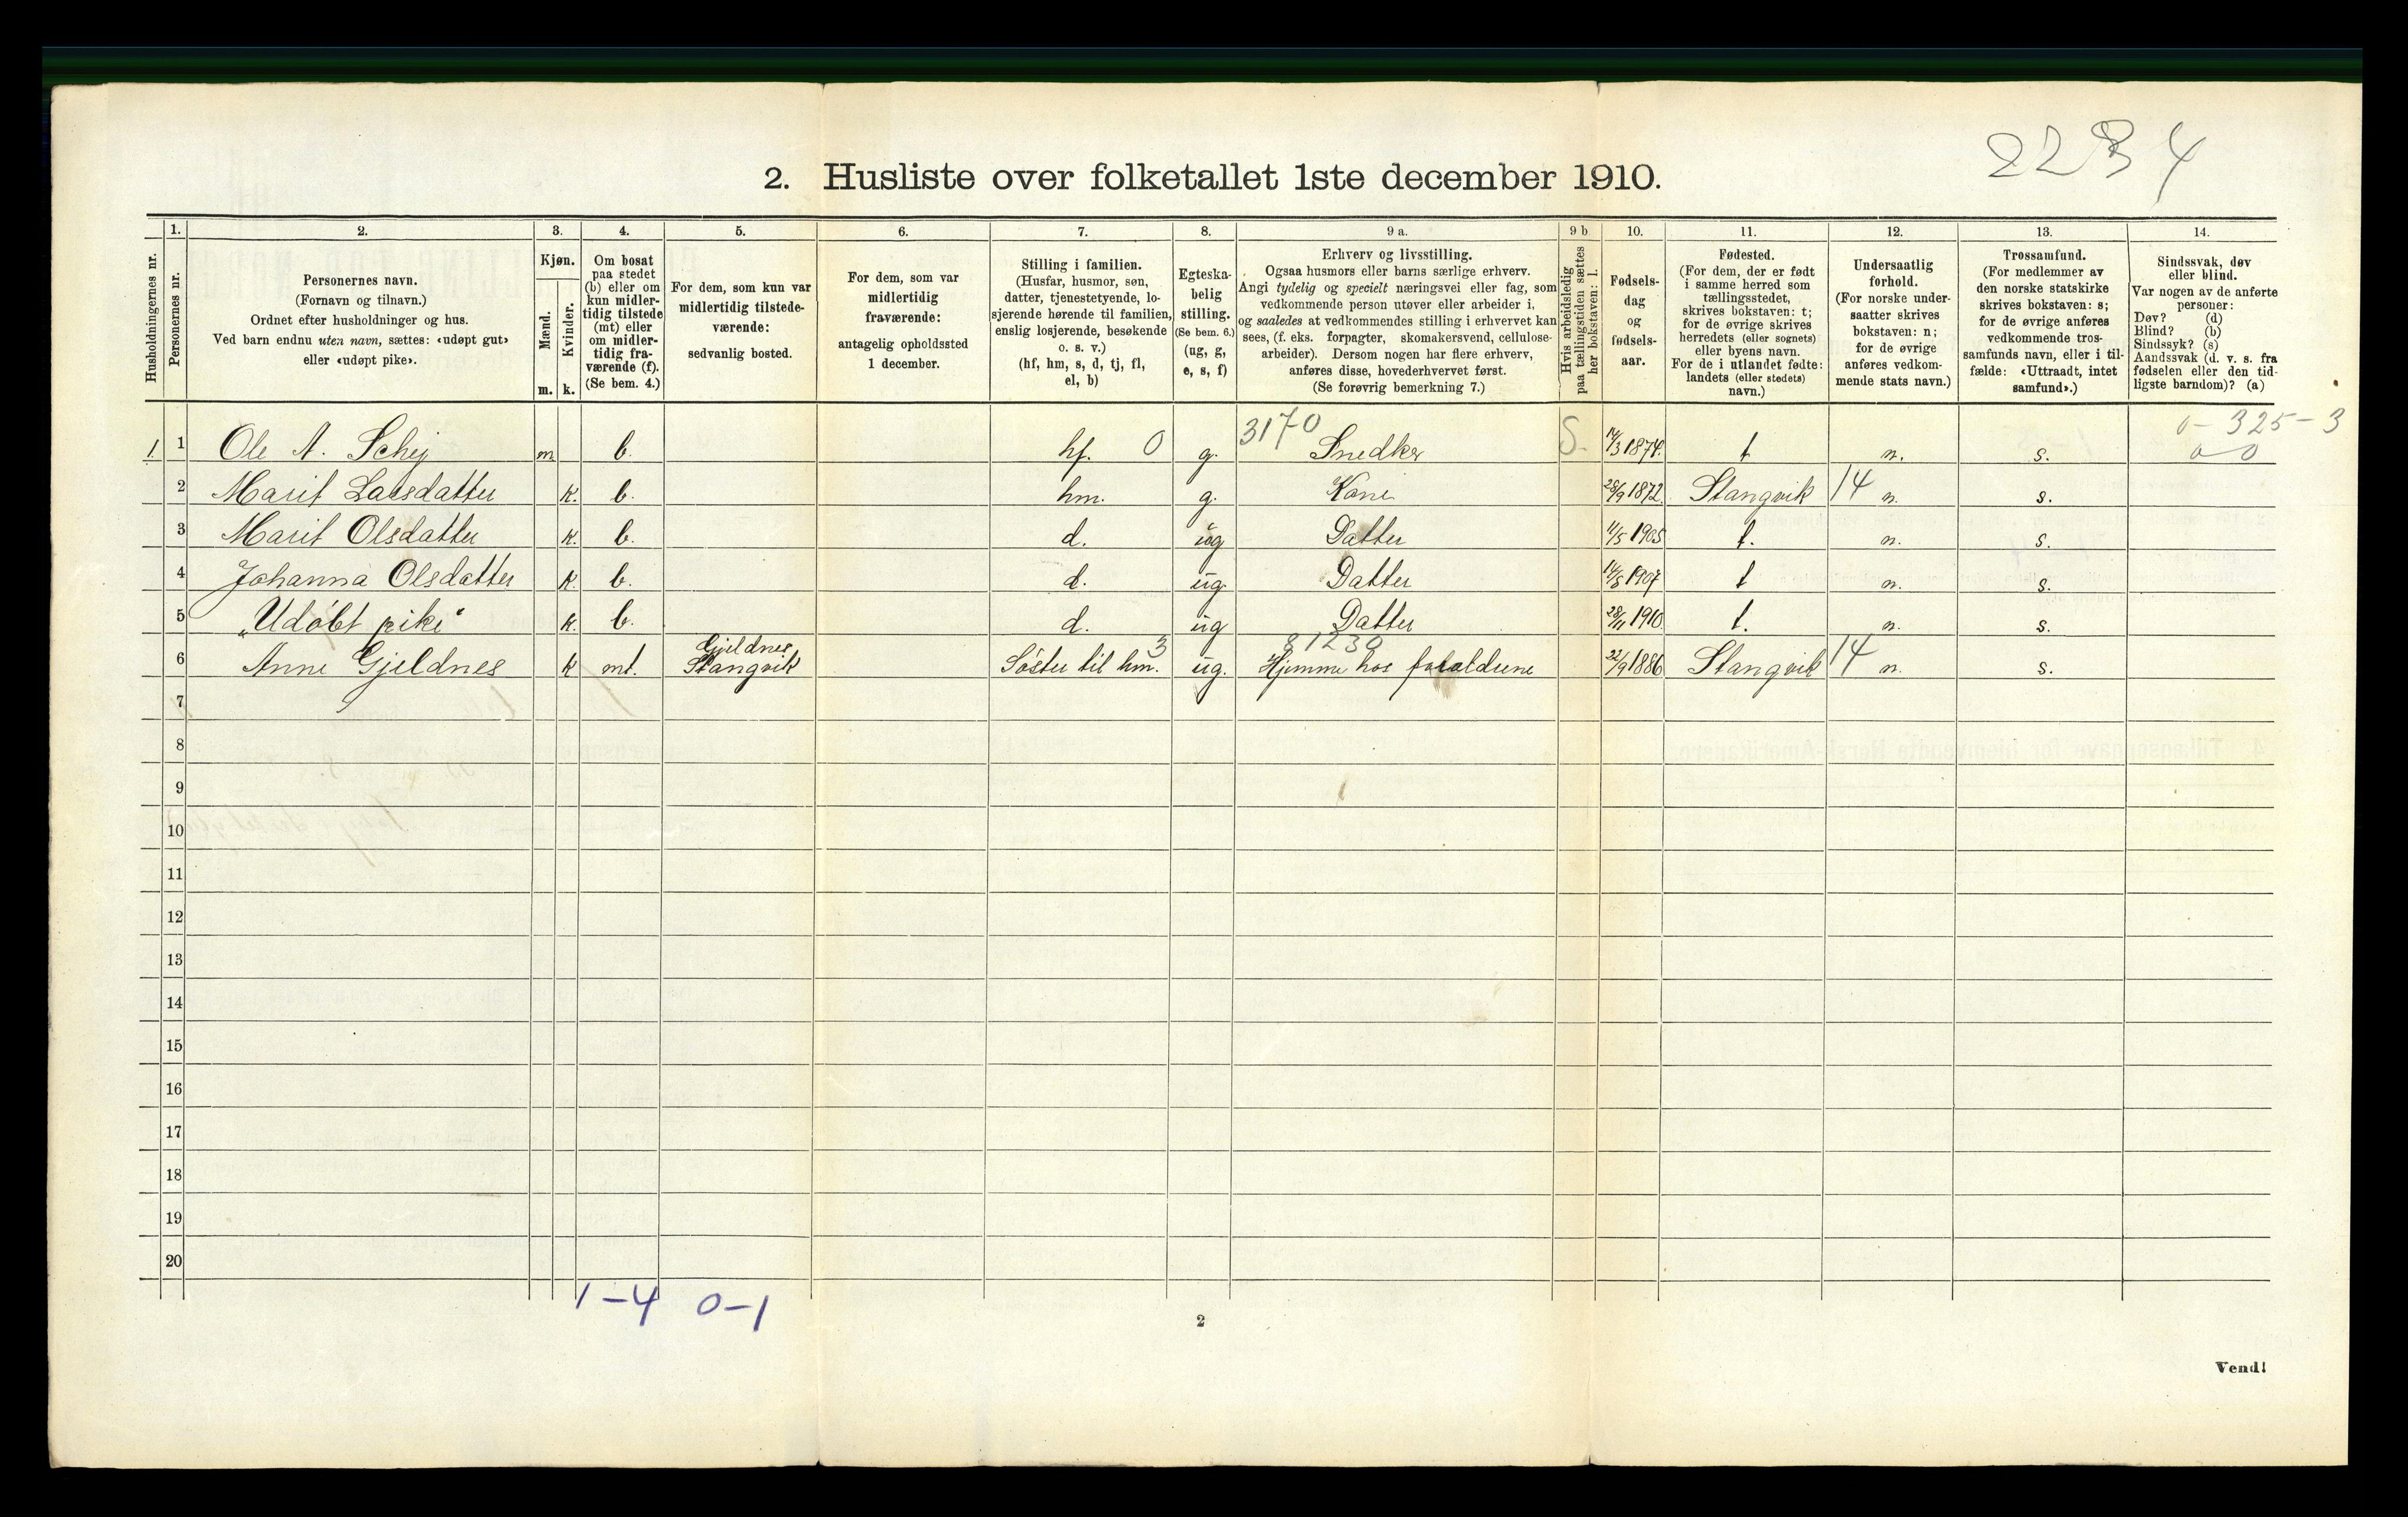 2234
2. Husliste over folketallet 1ste december 1910.
Husholdningernes nr.
1. Personernes nr.
2. Personernes navn.
(Fornavn og tilnavn.)
Ordnet efter husholdninger og hus.
Ved barn endnu uten navn, sættes: «udøpt gut»
eller «udøpt pike».
3. Kjøn.
Mænd. m.
Kvinder. k.
4. Om bosat
paa stedet
(b) eller om
kun midler-
tidig tilstede
(mt) eller
om midler-
tidig fra-
værende (f).
(Se bem. 4.)
5. For dem, som kun var
midlertidig tilstede-
værende:
sedvanlig bosted.
6. For dem, som var
midlertidig
fraværende:
antagelig opholdssted
1 december.
7. Stilling i familien.
(Husfar, husmor, søn,
datter, tjenestetyende, lo-
sjerende hørende til familien,
enslig losjerende, besøkende
o. s. v.)
(hf, hm, s, d, tj, fl,
el, b)
8. Egteska-
belig
stilling.
(Se bem. 6.)
(ug, g,
e, s, f)
9 a. Erhverv og livsstilling.
Ogsaa husmors eller barns særlige erhverv.
Angi tydelig og specielt næringsvei eller fag, som
vedkommende person utøver eller arbeider i,
og saaledes at vedkommendes stilling i erhvervet kan
sees, (f. eks. forpagter, skomakersvend, cellulose-
arbeider). Dersom nogen har flere erhverv,
anføres disse, hovederhvervet først.
(Se forøvrig bemerkning 7.)
9 b Hvis arbeidsledig
paa tællingstiden sættes
her bokstaven: l.
10. Fødsels-
dag
og
fødsels-
aar.
11. Fødested.
(For dem, der er født
i samme herred som
tællingsstedet,
skrives bokstaven: t;
for de øvrige skrives
herredets (eller sognets)
eller byens navn.
For de i utlandet fødte:
landets (eller stedets)
navn.)
12. Undersaatlig
forhold.
(For norske under-
saatter skrives
bokstaven: n;
for de øvrige
anføres vedkom-
mende stats navn.)
13. Trossamfund.
(For medlemmer av
den norske statskirke
skrives bokstaven: s;
for de øvrige anføres
vedkommende tros-
samfunds navn, eller i til-
fælde: «Uttraadt, intet
samfund».)
14. Sindssvak, døv
eller blind.
Var nogen av de anførte
personer:
Døv? (d)
Blind? (b)
Sindssyk? (s)
Aandssvak (d. v. s. fra
fødselen eller den tid-
ligste barndom)? (a)
0-325-3
1 1 Ole A. Schej m b. hf. 0 g. 3170 Snedker S. 14/3 1874. t n. s. 0 0
2 Marit Larsdatter k. b. hm. g. Kone 28/9 1872. Stangvik 14 n. s.
3 Marit Olsdatter k. b. d. ug Datter 11/5 1905 t. n. s.
4 Johanna Olsdatter k. b. d. ug. Datter 14/8 1907 t n. s.
5 „Udøbt pike“ k. b. d. ug Datter 28/11 1910 t. n. s.
6 Anne Gjeldnes k mt. Gjeldnes Stangvik Søster til hm. 3 ug. 81230 Hjemme hos forældrene 22/9 1886 Stangvik 14 n. s.
7
8
9
10
11
12
13
14
15
16
17
18
19
20
1-4 0-1
2
Vend!